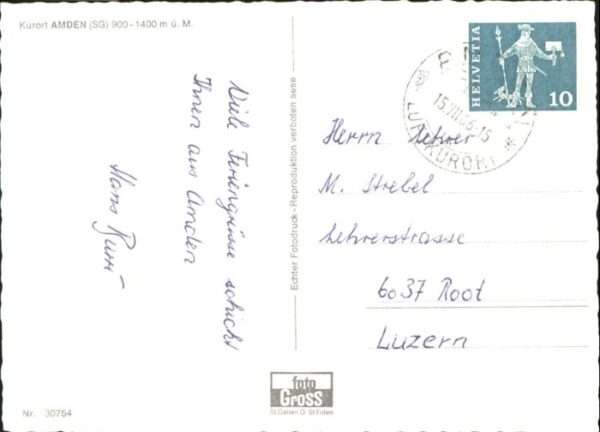 Kurort AMDEN (SG) 900-1400 m ü. M.
Viele Feriengrüsse schickt
Ihnen aus Amden
Hans
Echter Fotodruck - Reproduktion verboten
HELVETIA
10
15.VIII.66-15
LUFTKURORT
Herrn Lehrer
M. Strebel
Lehrerstrasse
6037 Root
Luzern
foto
GROSS
St.Gallen
Nr. 30754